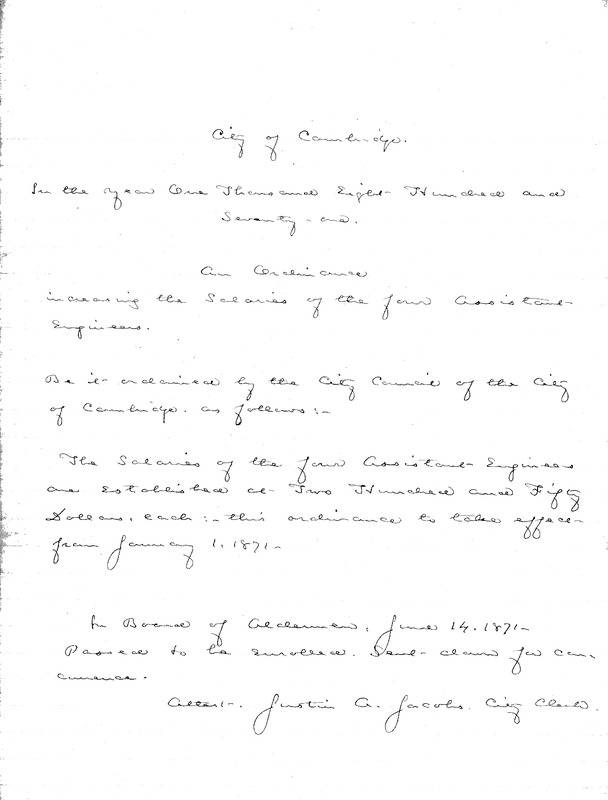 City of Cambridge.
In the year One Thousand Eight Hundred and
Seventy-one.
An Ordinance
increasing the Salaries of the four Assistant
Engineers.
Be it ordained by the City Council of the City
of Cambridge. as follows:-
The Salaries of the four Assistant Engineers
are established at Two Hundred and Fifty
Dollars, each:- this ordinance to take effect
from January 1, 1871-
In Board of Aldermen, June 14. 1871-
Passed to be enrolled. Sent down for con-
currence.
Attest-. Justin A. Jacobs. City Clerk.